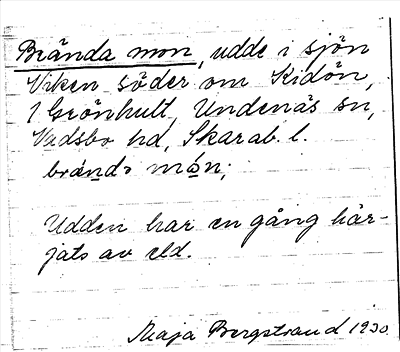 Brända mon, udde i sjön
Viken söder om Kidön,
1 Grönhult, Undenäs sn,
Vadsbo hd, Skarab. l.
brända món;
Udden har en gång här-
jats av eld.
Maja Bergstrand 1930